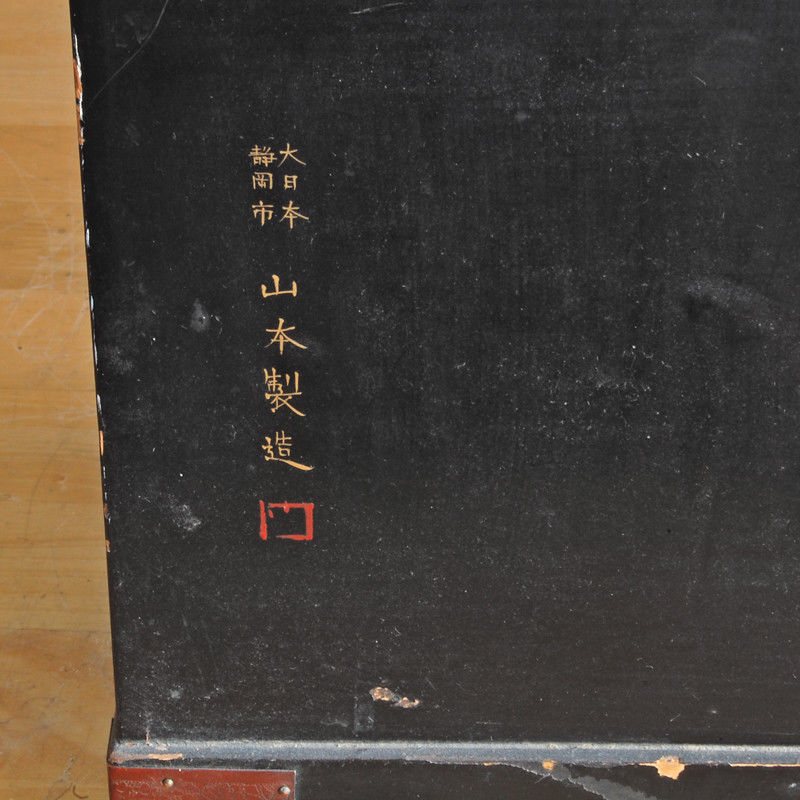 大日本
静岡市
山本製造